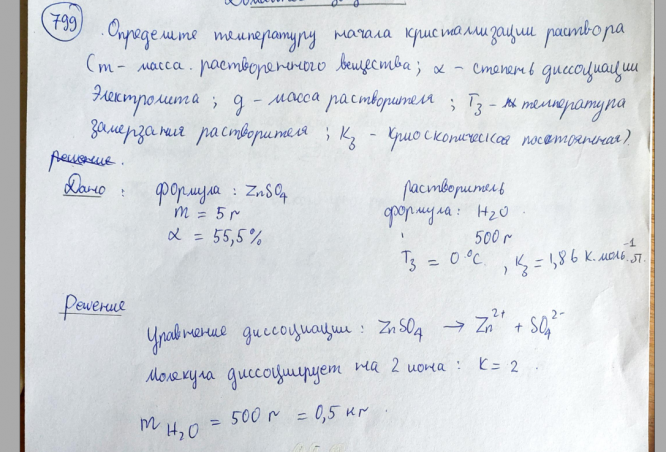 799
Определите температуру начала кристаллизации раствора
(m - масса растворенного вещества; α - степень диссоциации
электролита; g - масса растворителя; T₃ - температура
замерзания растворителя; K₃ - криоскопическая постоянная).
Решение.
Дано: формула: ZnSO₄
m = 5 г
α = 55,5%
растворитель
формула: H₂O
500 г
T₃ = 0 °C, K₃ = 1,86 К. моль⁻¹.
Решение
Уравнение диссоциации: ZnSO₄ → Zn²⁺ + SO₄²⁻
Молекула диссоциирует на 2 иона: K = 2.
m H₂O = 500 г = 0,5 кг.